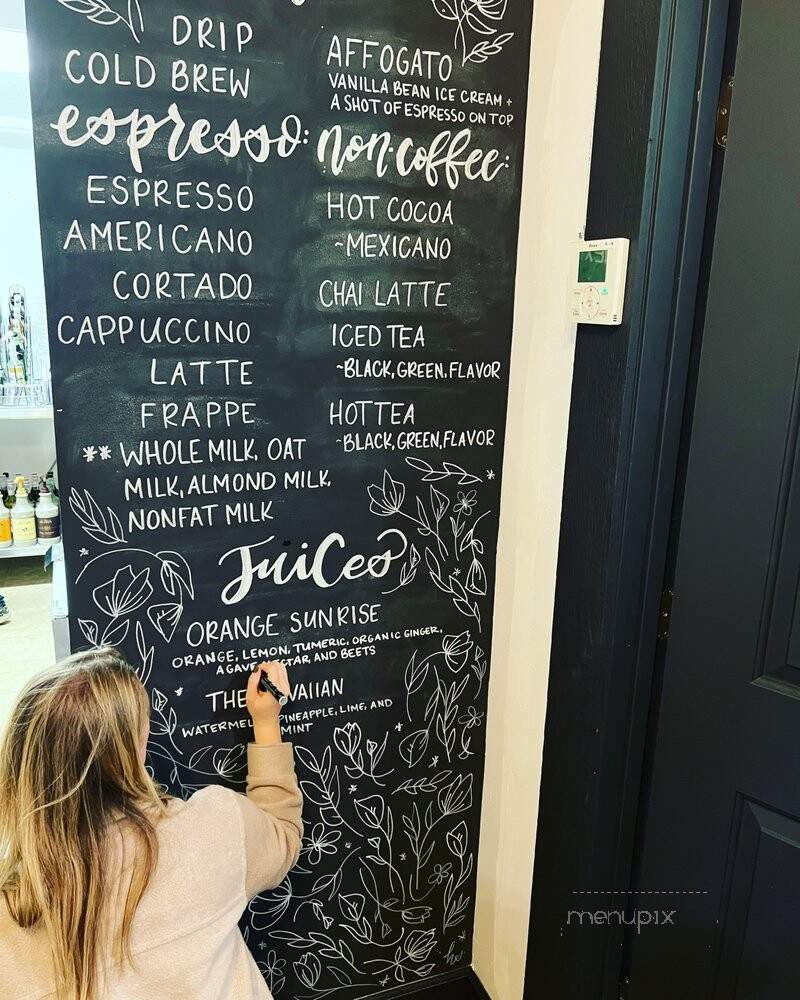 DRIP
COLD BREW
espresso:
ESPRESSO
AMERICANO
CORTADO
CAPPUCCINO
LATTE
FRAPPE
** WHOLE MILK, OAT
MILK, ALMOND MILK,
NONFAT MILK
AFFOGATO
VANILLA BEAN ICE CREAM +
A SHOT OF ESPRESSO ON TOP
non-coffee:
HOT COCOA
~MEXICANO
CHAI LATTE
ICED TEA
~BLACK, GREEN, FLAVOR
HOT TEA
~BLACK, GREEN, FLAVOR
Juices
ORANGE SUNRISE
ORANGE, LEMON, TUMERIC, ORGANIC GINGER,
AND BEETS
THE
PINEAPPLE, LIME, AND
MINT
menupix